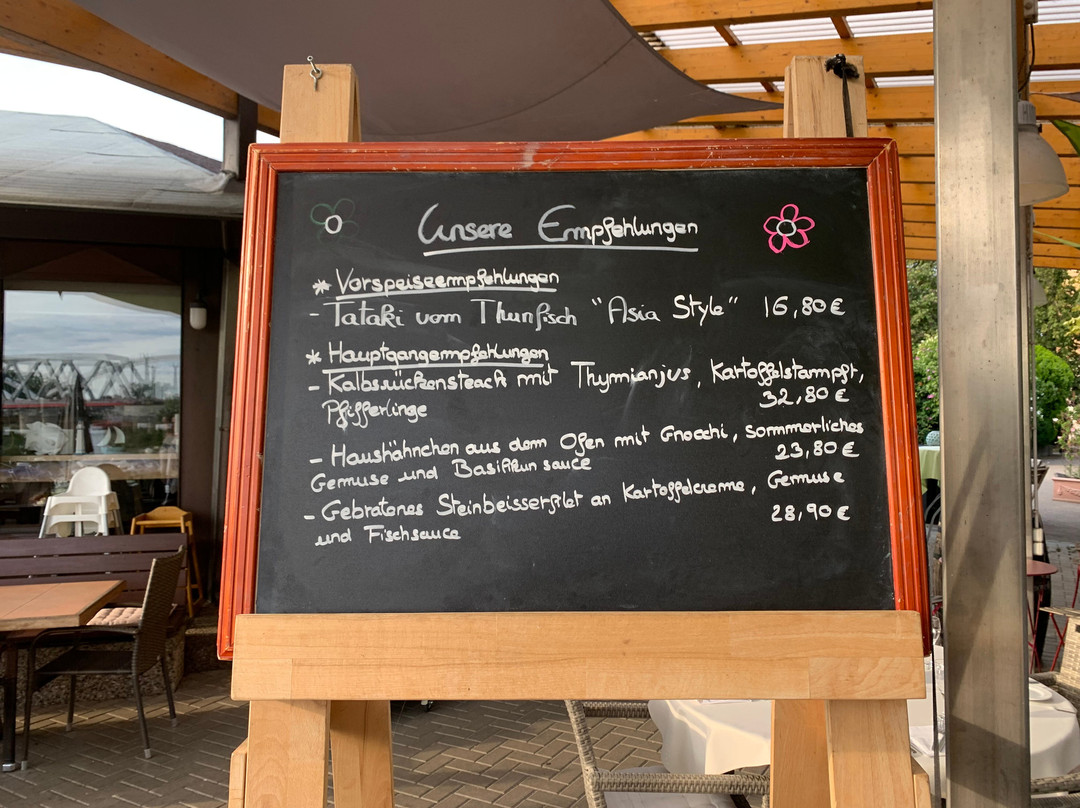 Unsere Empfehlungen
* Vorspeiseempfehlungen
- Tataki vom Thunfisch "Asia Style" 16,80 €
* Hauptgangempfehlungen
- Kalbsrückensteack mit Thymianjus, Kartoffelstampft,
Pfifferlinge 32,80 €
- Haushähnchen aus dem Ofen mit Gnocchi, sommerliches
Gemüse und Basilikum sauce 23,80 €
- Gebratenes Steinbeisserfilet an Kartoffelcreme, Gemüse
und Fischsauce 28,90 €